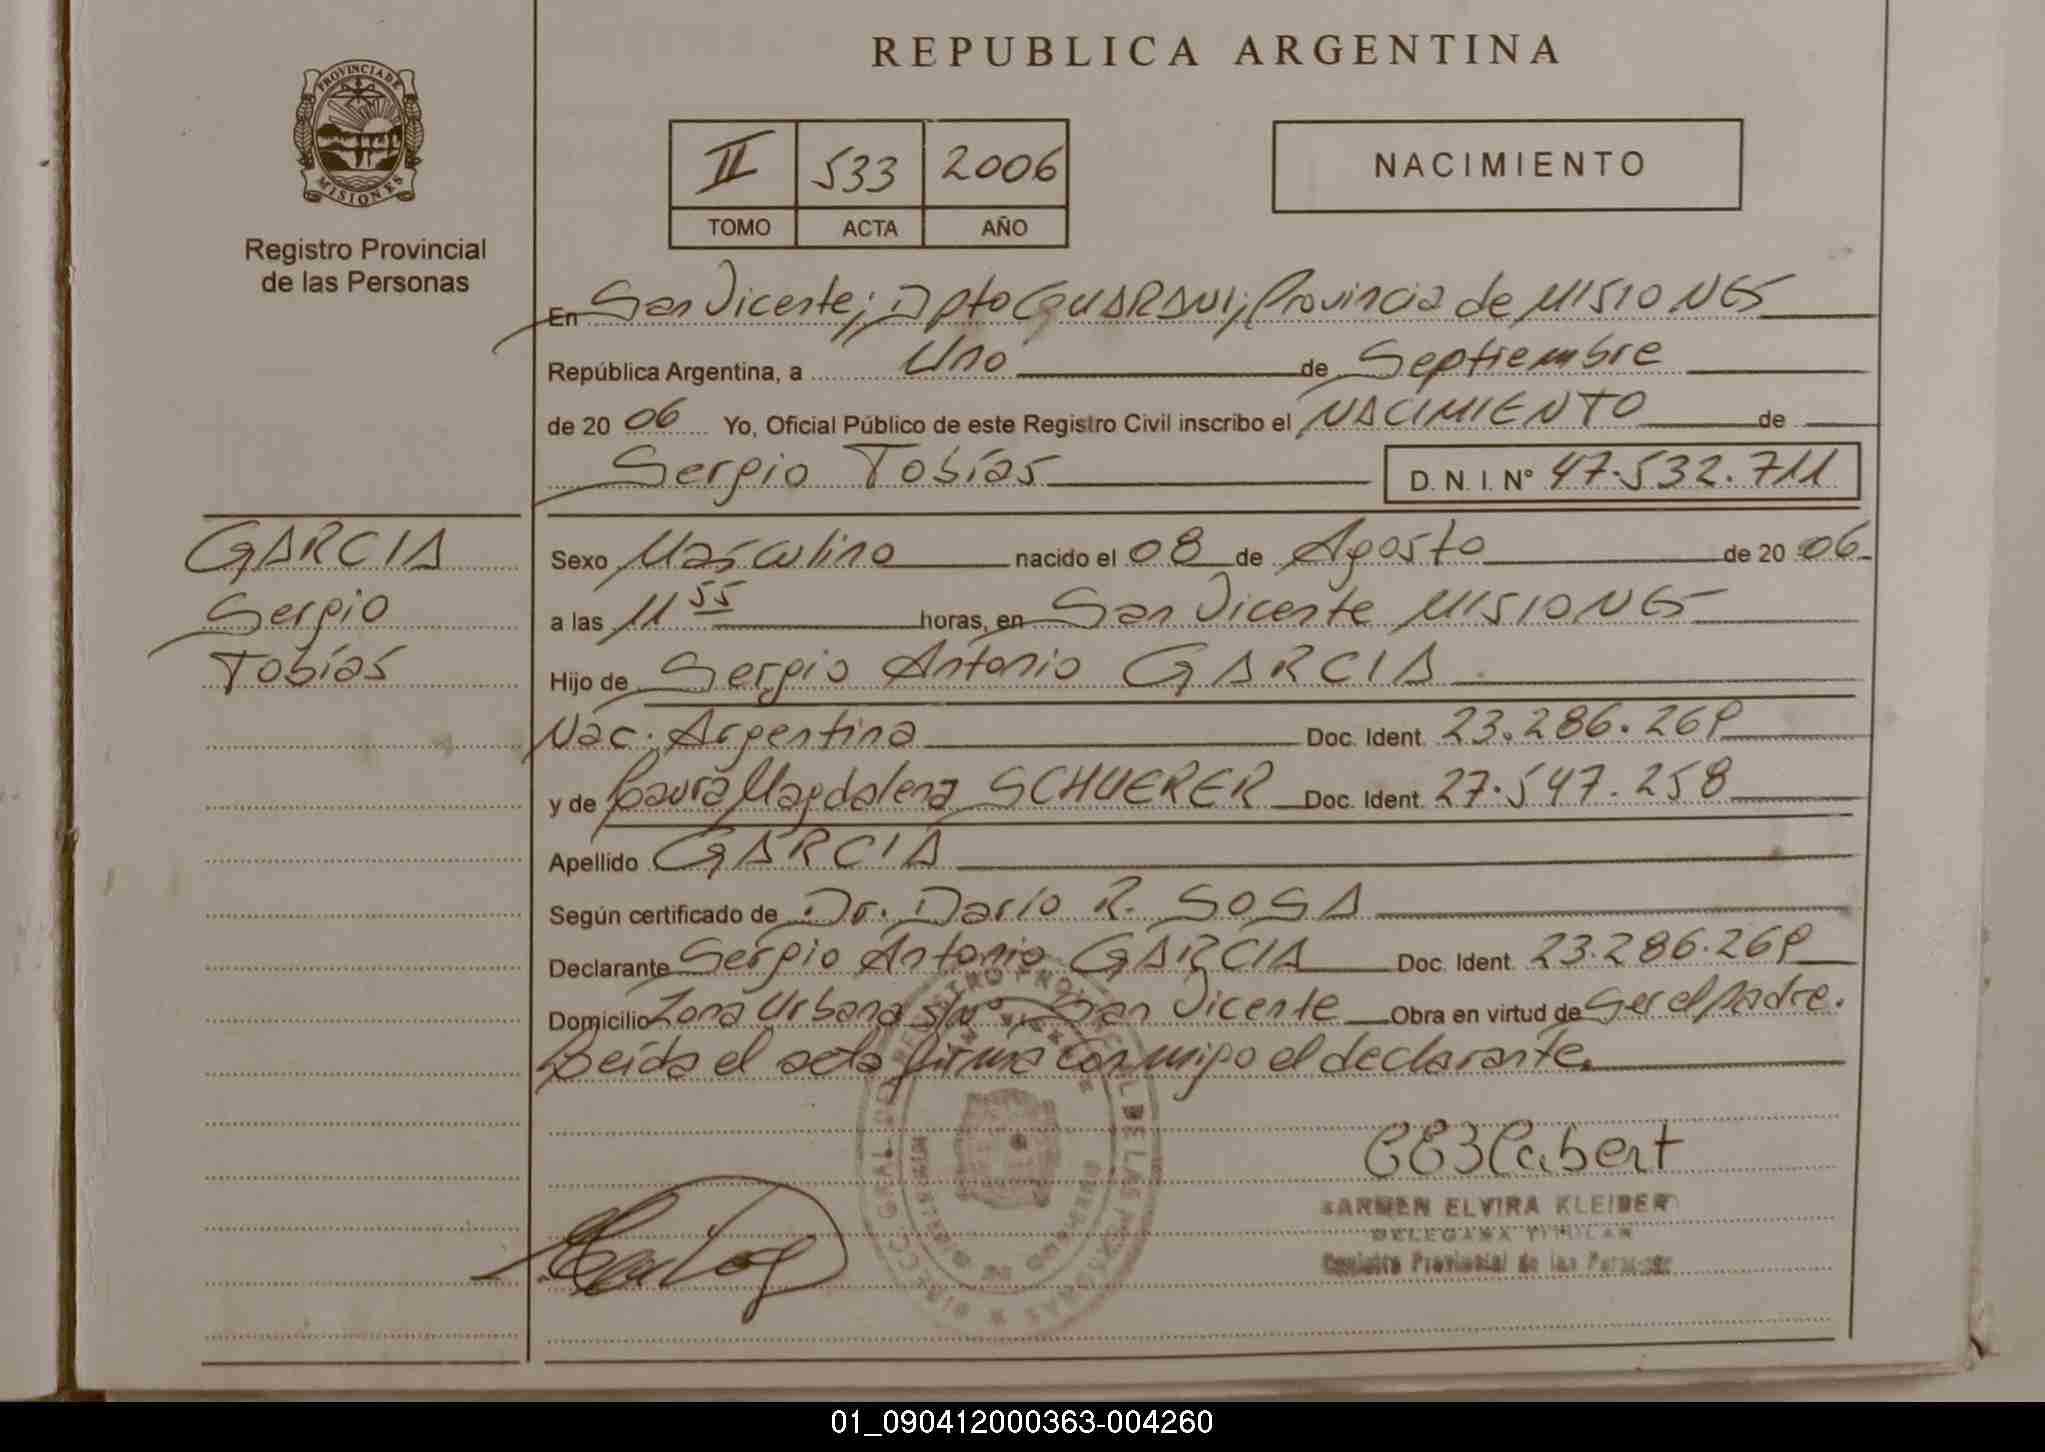 REPUBLICA ARGENTINA
PROVINCIA DE
MISIONES
Registro Provincial
de las Personas
II 533 2006
TOMO ACTA AÑO
NACIMIENTO
En San Vicente; Dpto GUARANI; Provincia de MISIONES
República Argentina, a Uno de Septiembre
de 20 06 Yo, Oficial Público de este Registro Civil inscribo el NACIMIENTO de
Sergio Tobías D. N. I. N° 47.532.711
GARCIA
Sergio
Tobías
Sexo Masculino nacido el 08 de Agosto de 20 06
a las 11 55 horas, en San Vicente MISIONES
Hijo de Sergio Antonio GARCIA
Nac. Argentina Doc. Ident. 23.286.269
y de Laura Magdalena SCHUERER Doc. Ident. 27.547.258
Apellido GARCIA
Según certificado de Dr. Darío R. SOSA
Declarante Sergio Antonio GARCIA Doc. Ident. 23.286.269
Domicilio Zona Urbana s/nº San Vicente Obra en virtud de Ser el padre.
Leída el acta firma conmigo el declarante.
CARMEN ELVIRA KLEIBER
DELEGADA TITULAR
Registro Provincial de las Personas
01_090412000363-004260